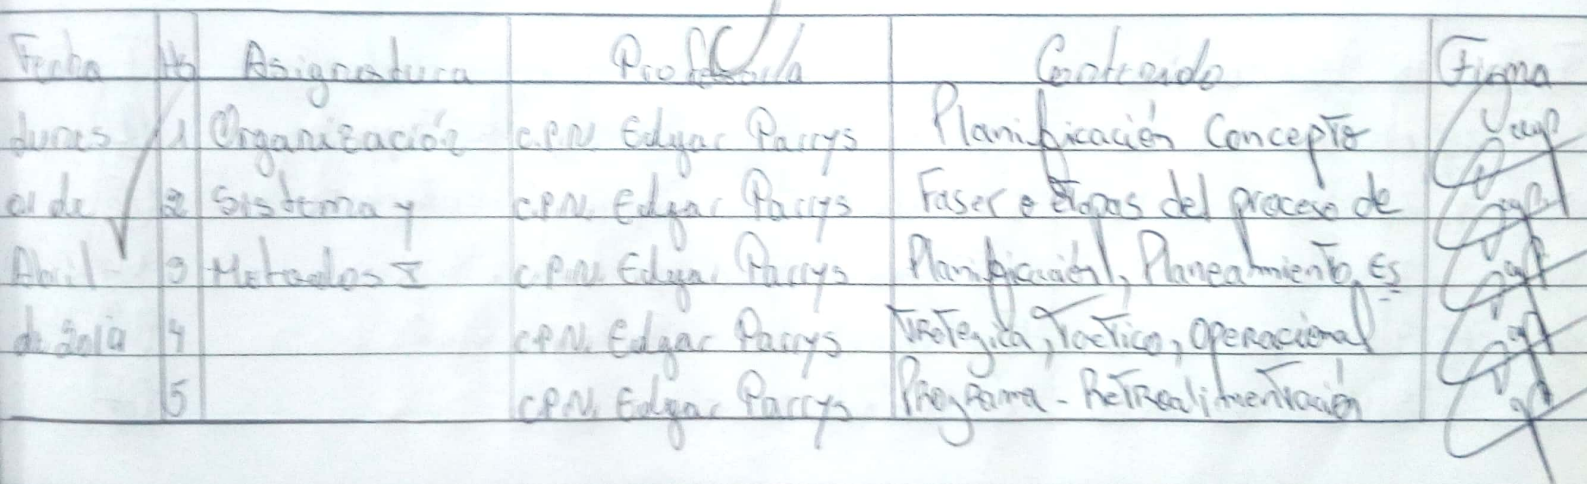 Fecha Hs Asignatura Prof Contenido Firma
Lunes 1 Organización C.P.N. Edgar Parrys Planificación Concepto
01 de 2 Sistema y C.P.N. Edgar Parrys Fases o etapas del proceso de
Abril 3 Metodos I C.P.N. Edgar Parrys Planificación, Planeamiento, Es
de 2019 4 C.P.N. Edgar Parrys trategica, Tactico, Operacional
5 C.P.N. Edgar Parrys Programa - Retroalimentación